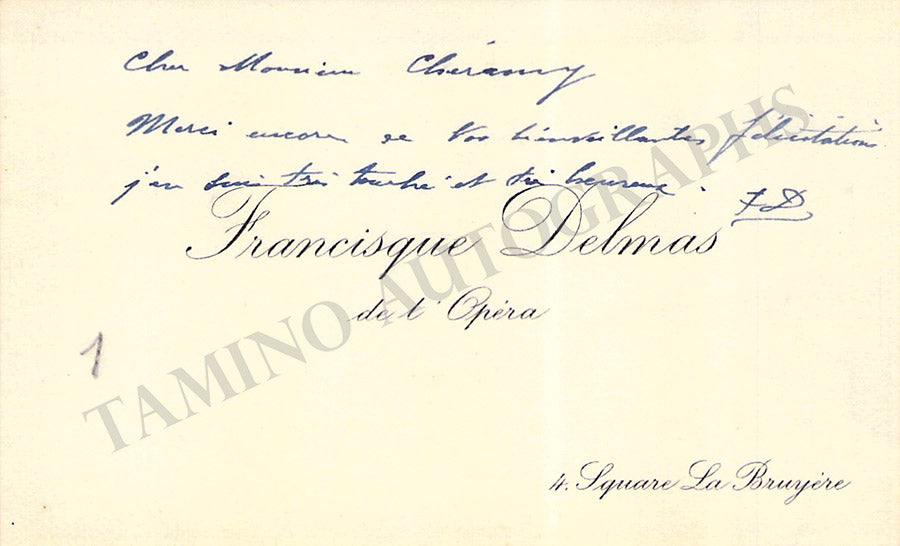 Cher Monsieur Chéramy
Merci encore de vos bienveillantes félicitations
j'en suis très touché et très heureux. FD
Francisque Delmas
de l'Opéra
1
TAMINO AUTOGRAPHS
4. Square La Bruyère